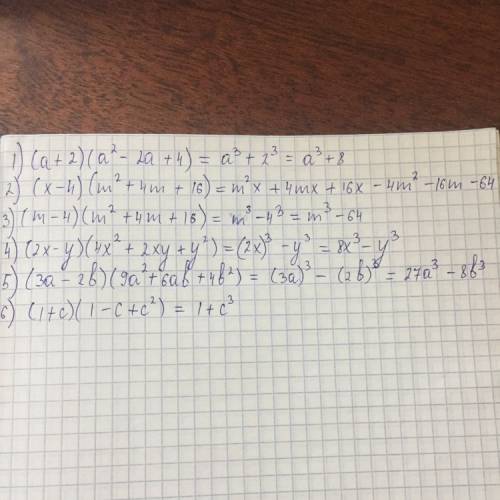 1) (a+2)(a² - 2a + 4) = a³ + 2³ = a³ + 8
2) (x-4)(m² + 4m + 16) = m²x + 4mx + 16x - 4m² - 16m - 64
3) (m-4)(m² + 4m + 16) = m³ - 4³ = m³ - 64
4) (2x-y)(4x² + 2xy + y²) = (2x)³ - y³ = 8x³ - y³
5) (3a - 2b)(9a² + 6ab + 4b²) = (3a)³ - (2b)³ = 27a³ - 8b³
6) (1+c)(1 - c + c²) = 1 + c³